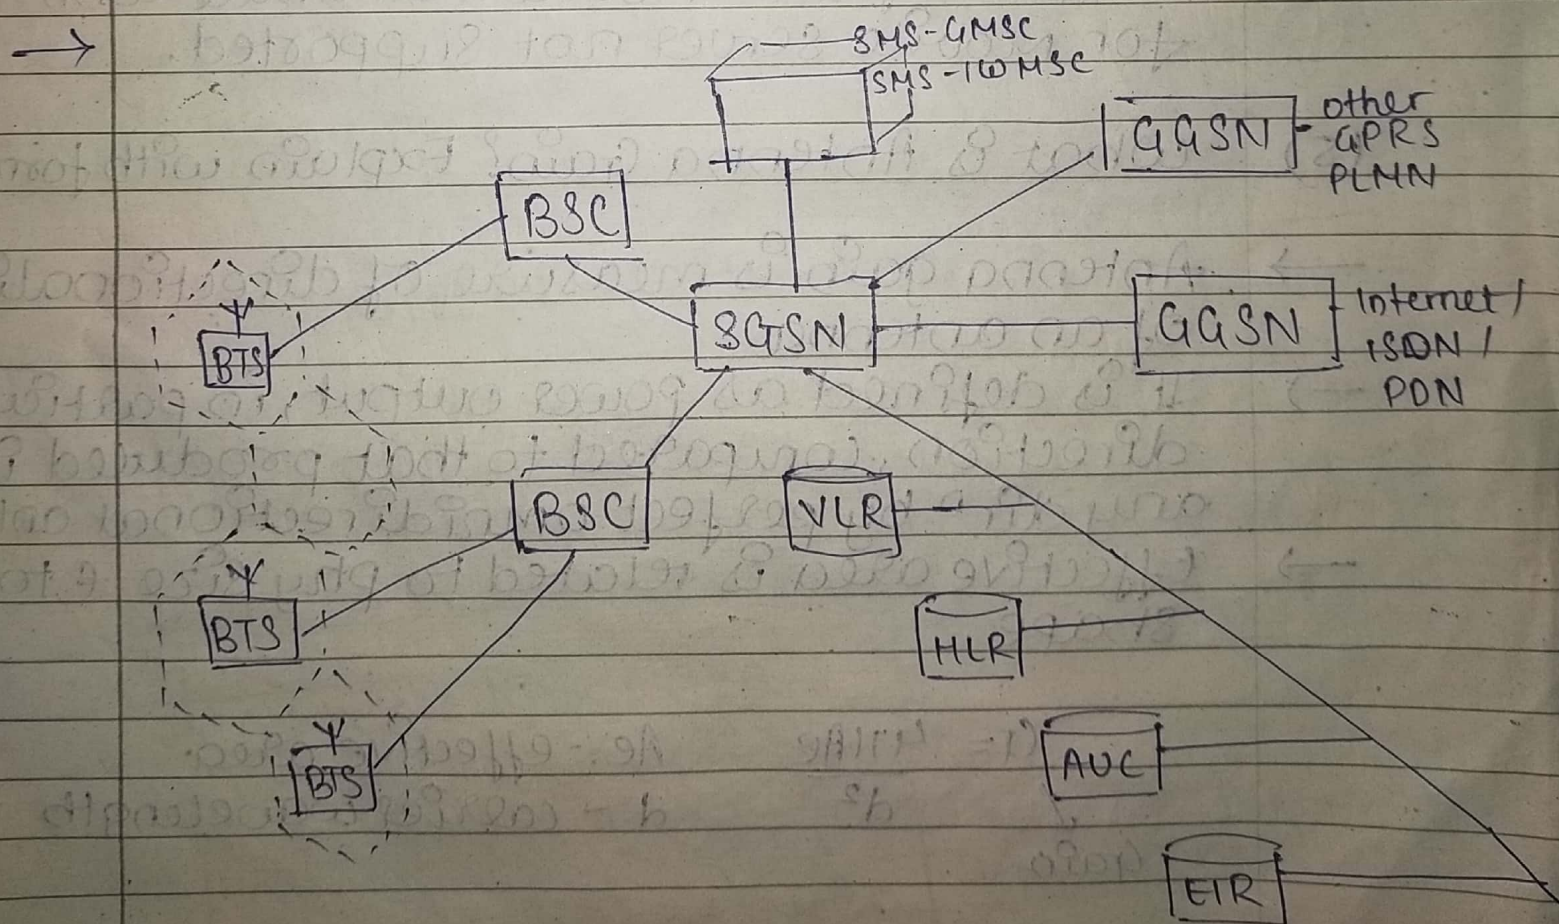 SMS-GMSC
SMS-IWMSC
GGSN
other
GPRS
PLMN
BSC
SGSN
GGSN
Internet/
ISDN/
PDN
BTS
BSC
VLR
BTS
HLR
BTS
AUC
EIR